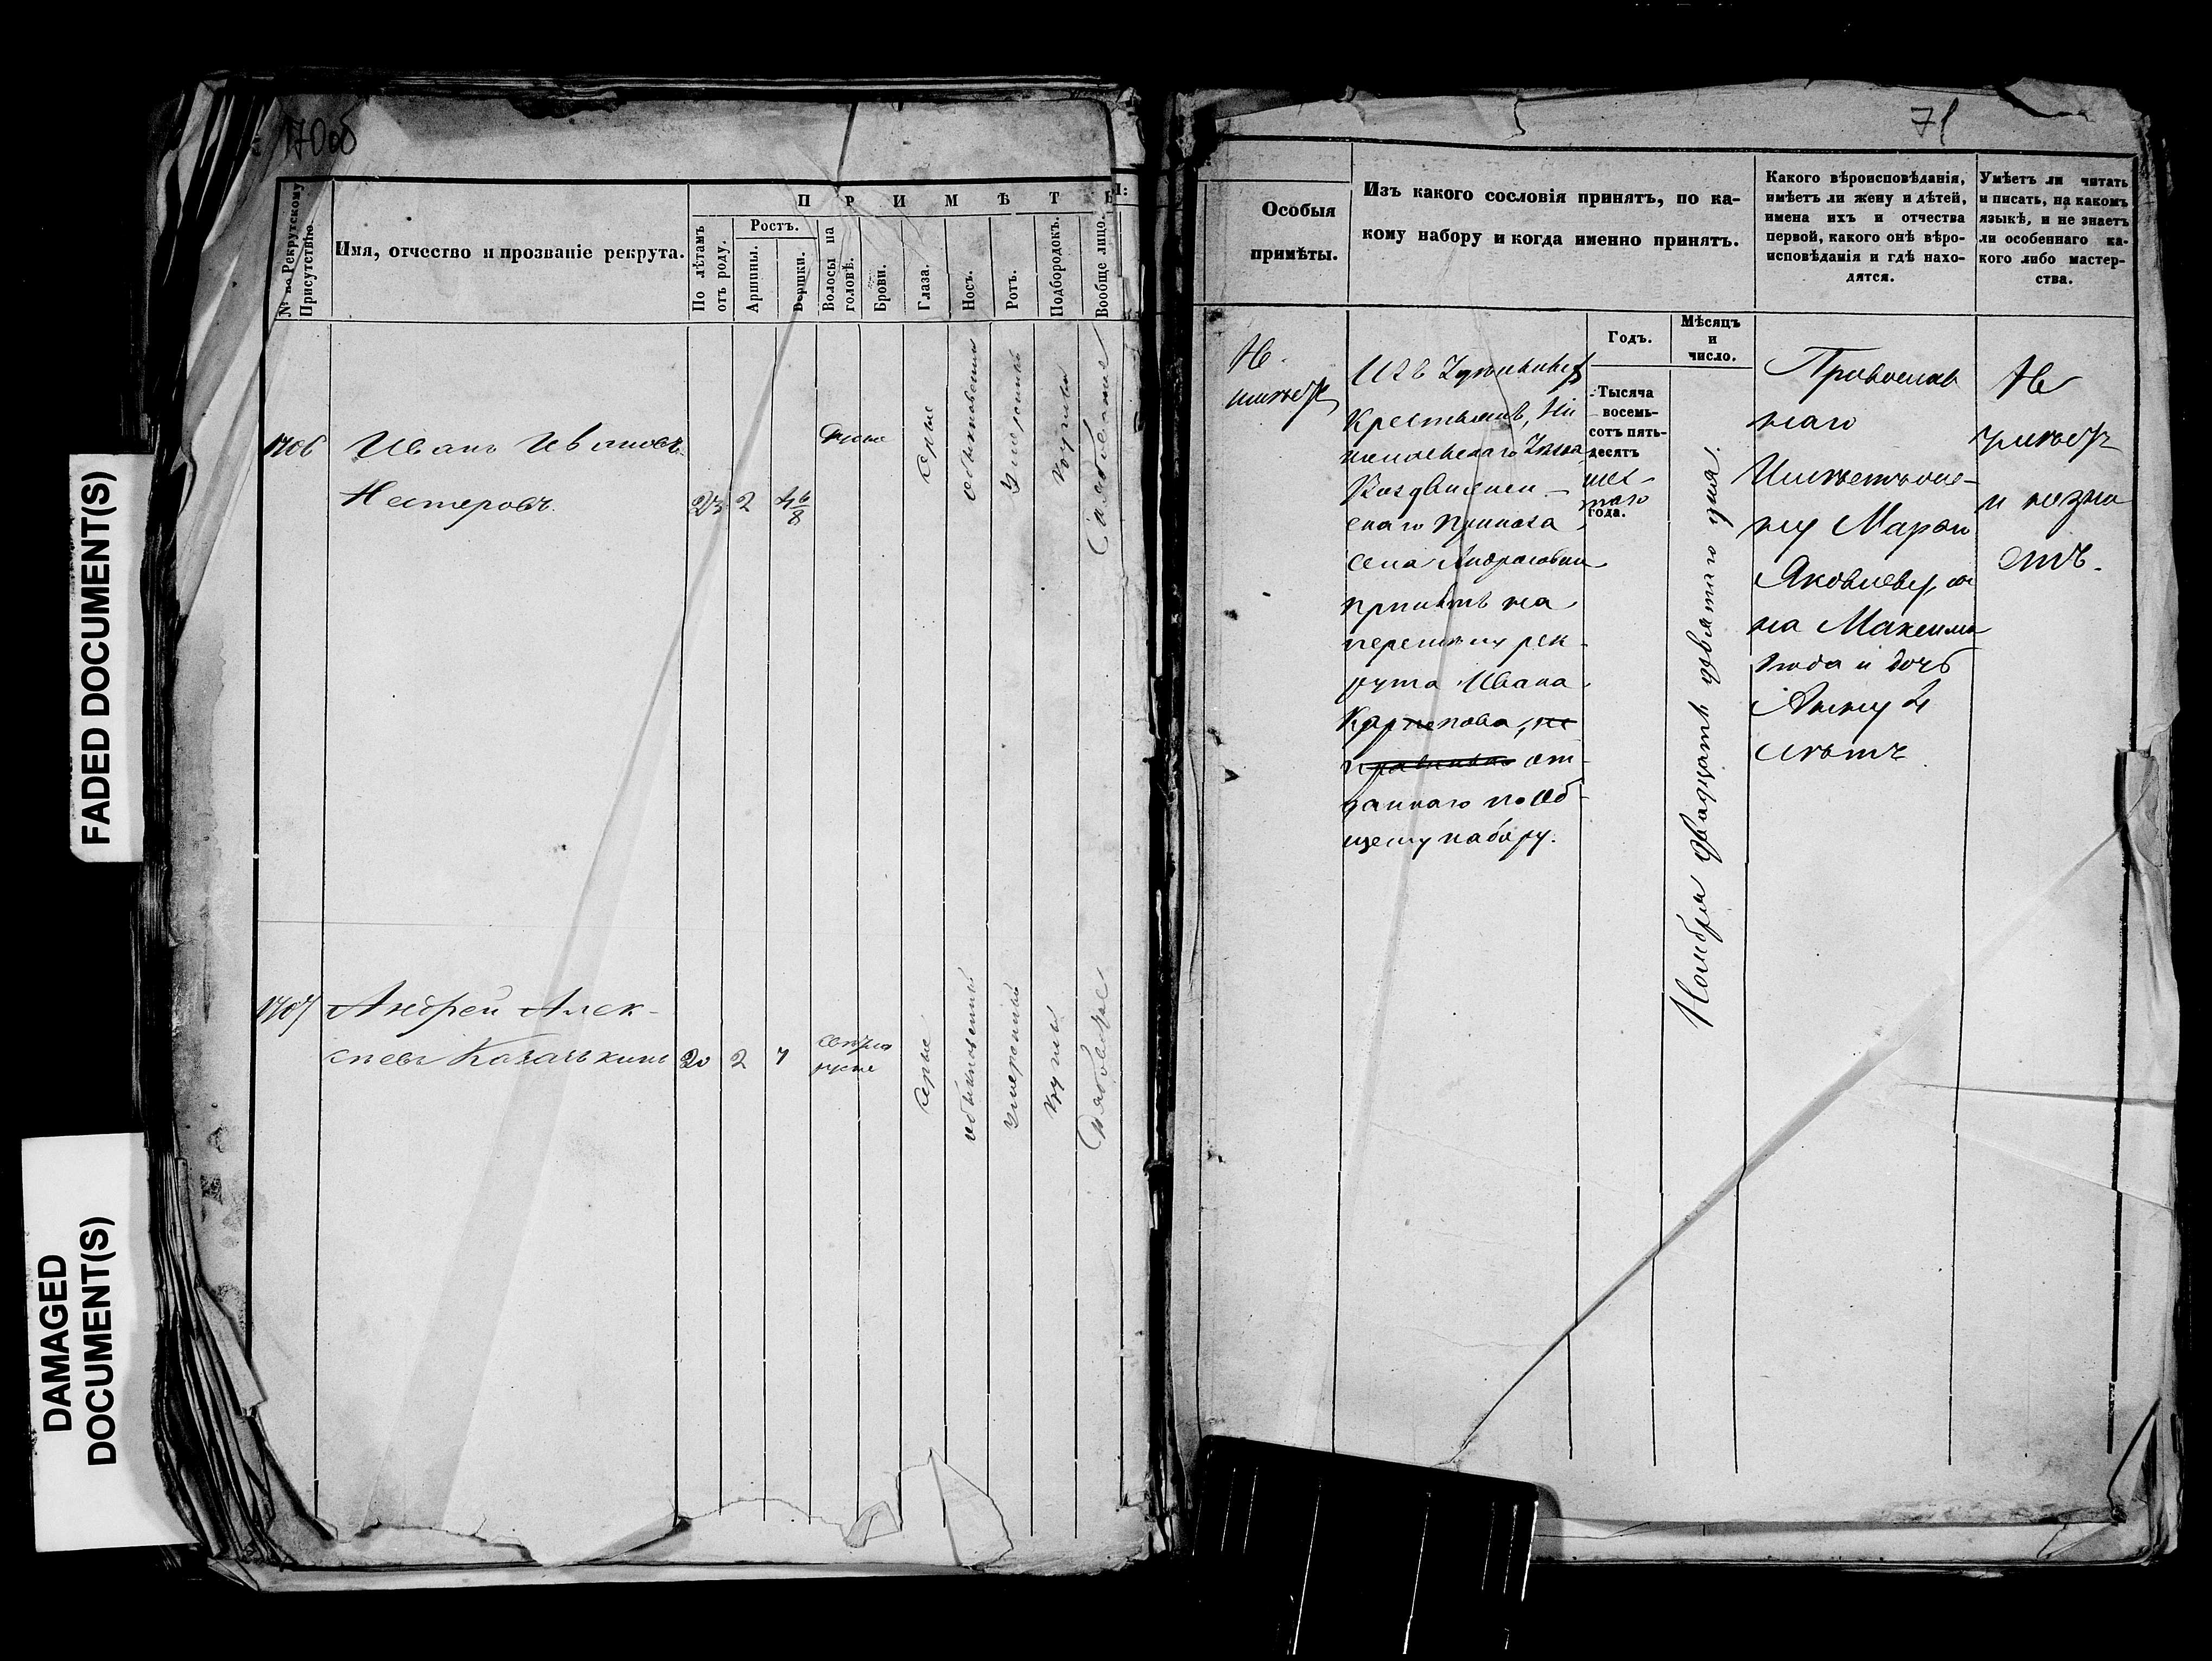 FADED DOCUMENT(S)
DAMAGED
DOCUMENT(S)
70об
№ по Рекрутскому
Присутствію.
Имя, отчество и прозваніе рекрута.
П Р И М Ѣ Т Ы:
По лѣтамъ
отъ роду.
Ростъ.
Аршины.
Вершки.
Волосы на
головѣ.
Брови.
Глаза.
Носъ.
Ротъ.
Подбородокъ.
Вообще лицо.
1706
Иванъ Ивановъ
Нестеровъ.
23
2
4 6/8
русые
серые
обыкновенный
умеренный
круглый
Рябоватое
1707
Андрей Алек-
сѣевъ
20
2
7
светло
русые
серые
обыкновенный
умеренный
круглый
Рябоватое
71
Особыя
примѣты.
Изъ какого сословія принятъ, по ка-
кому набору и когда именно принятъ.
Какого вѣроисповѣданія,
имѣетъ ли жену и дѣтей,
имена ихъ и отчества
первой, какого онѣ вѣро-
исповѣданія и гдѣ нахо-
дятся.
Умѣетъ ли читать
и писать, на какомъ
языкѣ, и не знаетъ
ли особеннаго ка-
кого либо мастер-
ства.
Годъ.
Мѣсяцъ
и
число.
Не
имѣетъ
Изъ Удельныхъ
Крестьянъ,
Воздвижен-
скаго Приказа
села
принятъ на
перемѣну рек-
рута Ивана
Карпова, не
правильно от-
даннаго по об-
щему набору.
Тысяча
восемь-
сотъ пять-
десятъ
шес-
таго
года.
Ноября двадцать девятаго дня.
Православ
наго
Имѣетъ же-
ну Марью
Яковлеву, сы
на Максима
года и дочь
Анну 2
лѣтъ
Не
умѣетъ
и незна
етъ.